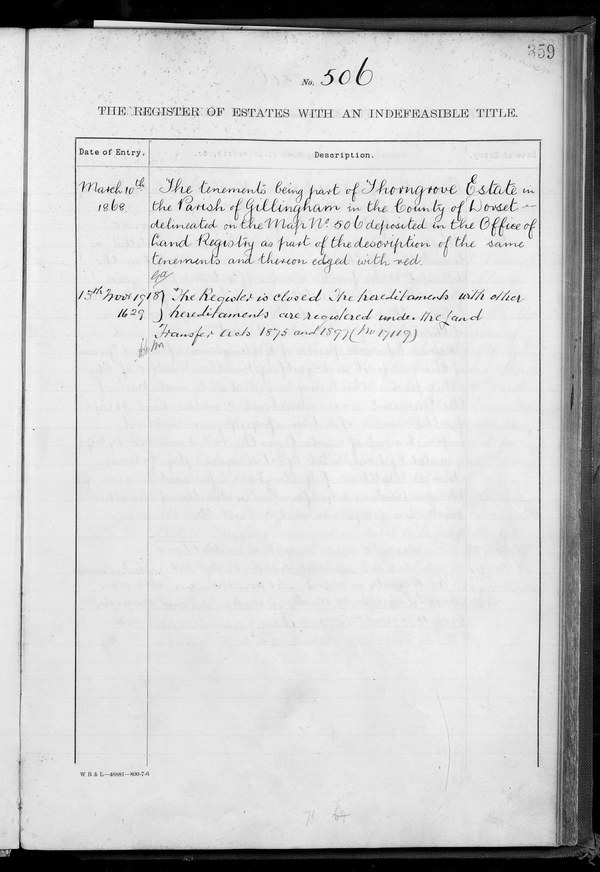 359
No. 506
THE REGISTER OF ESTATES WITH AN INDEFEASIBLE TITLE.
Date of Entry. Description.
March 10th The tenements being part of Thorngrove Estate in
1868 the Parish of Gillingham in the County of Dorset
delineated on the Map No 506 deposited in the Office of
Land Registry as part of the description of the same
tenements and thereon edged with red.
13th Nov 1918 The Register is closed The hereditaments with other
1629 hereditaments are registered under the Land
Transfer Acts 1875 and 1897 (No 17119)
W B & L—46881—800-7-6
71